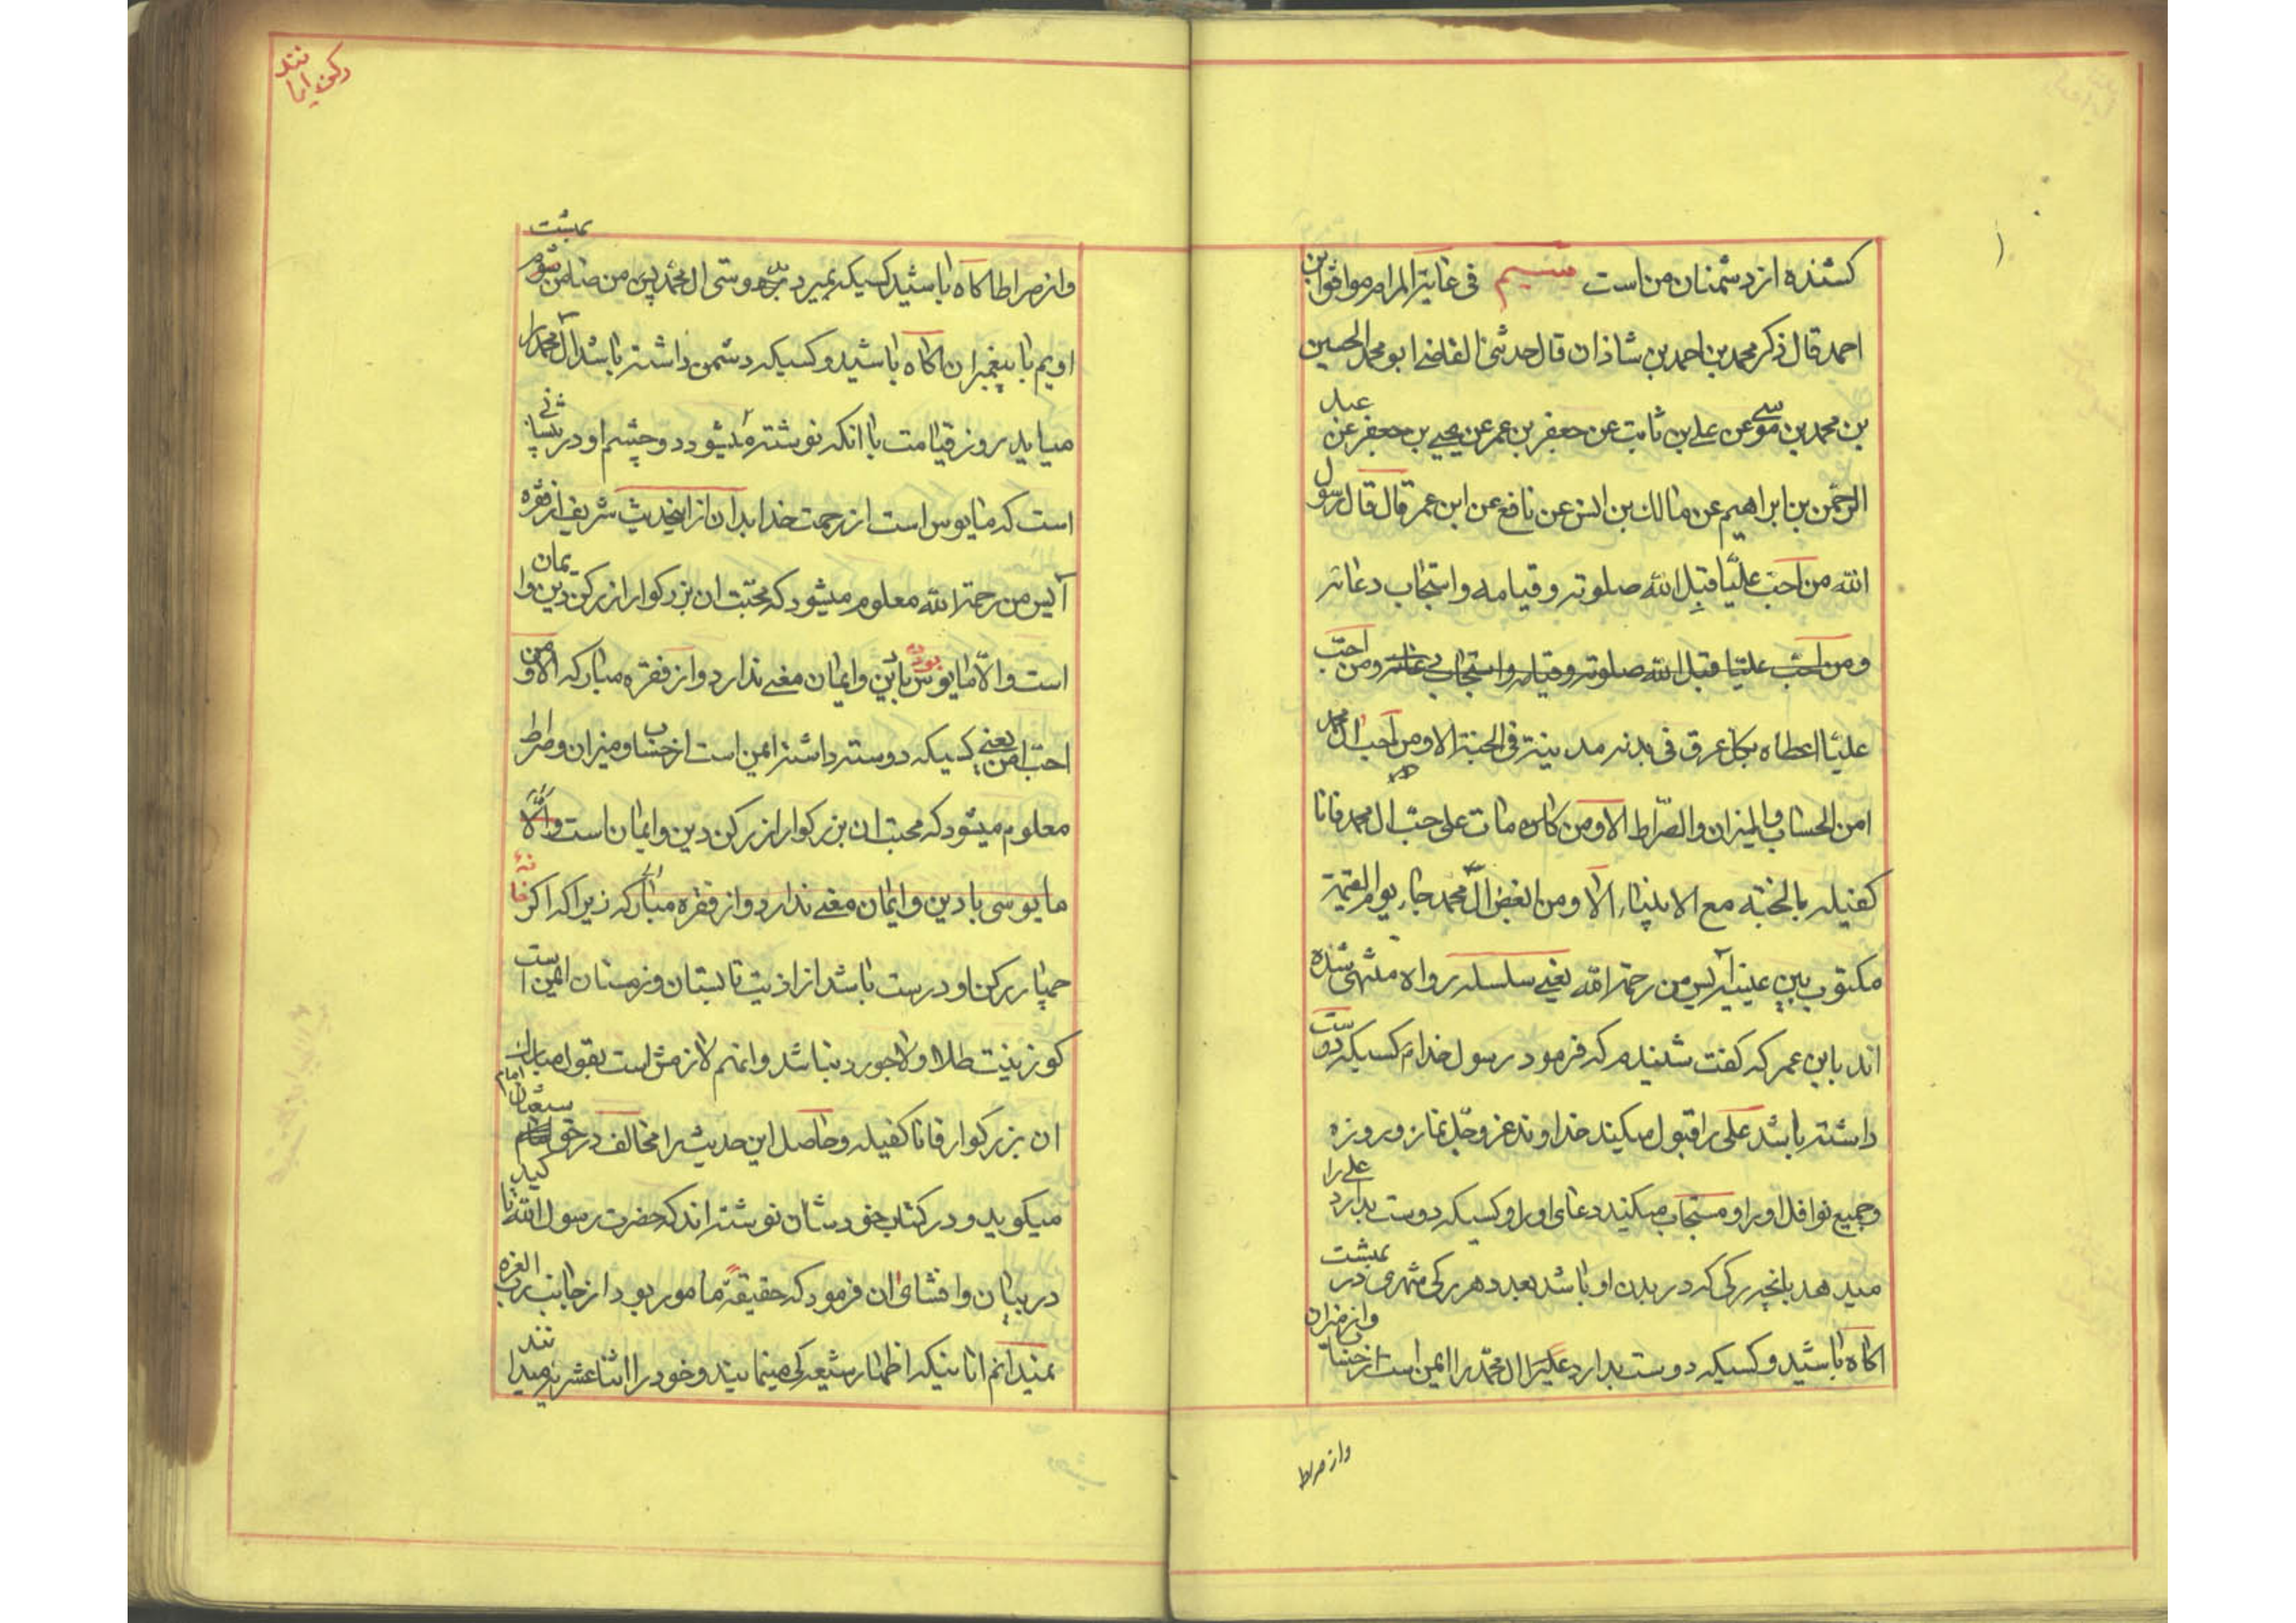 کشنده از دشمنان من است سیم فی غایة المرام موافق ابن
احمد قال ذکر محمد بن احمد بن شاذان قال حدثنی القاضی ابو محمد الحسین
بن محمد بن موسی عن علی بن ثابت عن جعفر بن عمر عن یحیی بن جعفر عن عبد
الرحمن بن ابراهیم عن مالک بن انس عن نافع عن ابن عمر قال قال رسول
الله من احب علیّا قبل الله صلوته و قیامه و استجاب دعائه
و من احب علیّا قبل الله صلوته و قیامه و استجاب دعائه و من احبّ
علیّا اعطاه بکل عرق فی بدنه مدینة فی الجنة الا و من احب ال محمد
امن الحساب و المیزان و الصّراط الا و من کان مات علی حبّ ال محمد فانا
کفیله بالجنّة مع الانبیاء الا و من ابغض ال محمد جاء یوم القیمة
مکتوب بین عینیه آیس من رحمة الله یعنی سلسله رواه منتهی شده
اند بابن عمر که گفت شنیدم که فرمود رسول خدا م کسیکه دوست
داشته باشد علی را قبول میکند خداوند عزّوجلّ نماز و روزه
و جمیع نوافل او را و مستجاب میکند دعای او را و کسیکه دوست بدارد علی را
میدهد بانچه رکی که در بدن او باشد بعدد هر رکی شهری در بهشت
اکاه باشید و کسیکه دوست بدارد ال محمّد را ایمن است از حساب و از میزان
واز صراط
تند
رکن ایما
و از صراط اکاه باشید کسیکه بمیرد بر دوستی ال محمد پس من ضامن شوم بهشت
اویم با پیغمبران اکاه باشید و کسیکه دشمن داشته باشد آل محمد را
میاید روز قیامت با انکه نوشته میشود در دو چشم او در پیشانی
است که مایوس است از رحمت خدا بدان از اینحدیث شریف از فقره
آیس من رحمة الله معلوم میشود که محبّت ان بزرکوار از رکن دین و ایمان
است و الّا مایوس بودن بادین و ایمان معنی ندارد و از فقره مبارکه الا و من
احب امن یعنی کسیکه دوست داشته ایمن است از حساب و میزان و صراط
معلوم میشود که محبت ان بزرکوار از رکن دین و ایمان است و الّا
مایوسی با دین و ایمان معنی ندارد و از فقره مبارکه زیرا که اکر خانهٔ
چهار رکن او درست باشد از اذیت تابستان و زمستان ایمن است
کو زینت طلا و لاجورد نباشد و انهم لازمش است بقول مبارک
ان بزرکوار فانا کفیله و حاصل این حدیث را مخالف در حق امام شیعیان
میکوید و در کتاب خودشان نوشته اند که حضرت رسول الله تاکید
در بیان و افشای ان فرمود که حقیقةً مامور بود از جانب رب العزه
نمیدانم انانیکه اظهار شیعه کی مینمایند و خود را اثنا عشریه میدانند